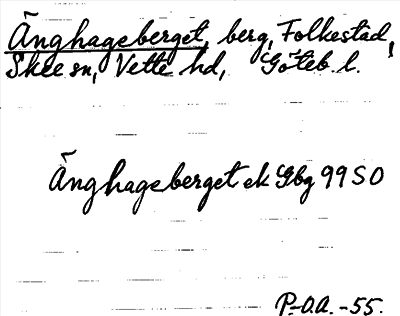 Änghageberget, berg, Folkestad,
Skee sn, Vette hd, Göteb. l.
Änghageberget ek Gbg 99 SO
P-O.A. -55.